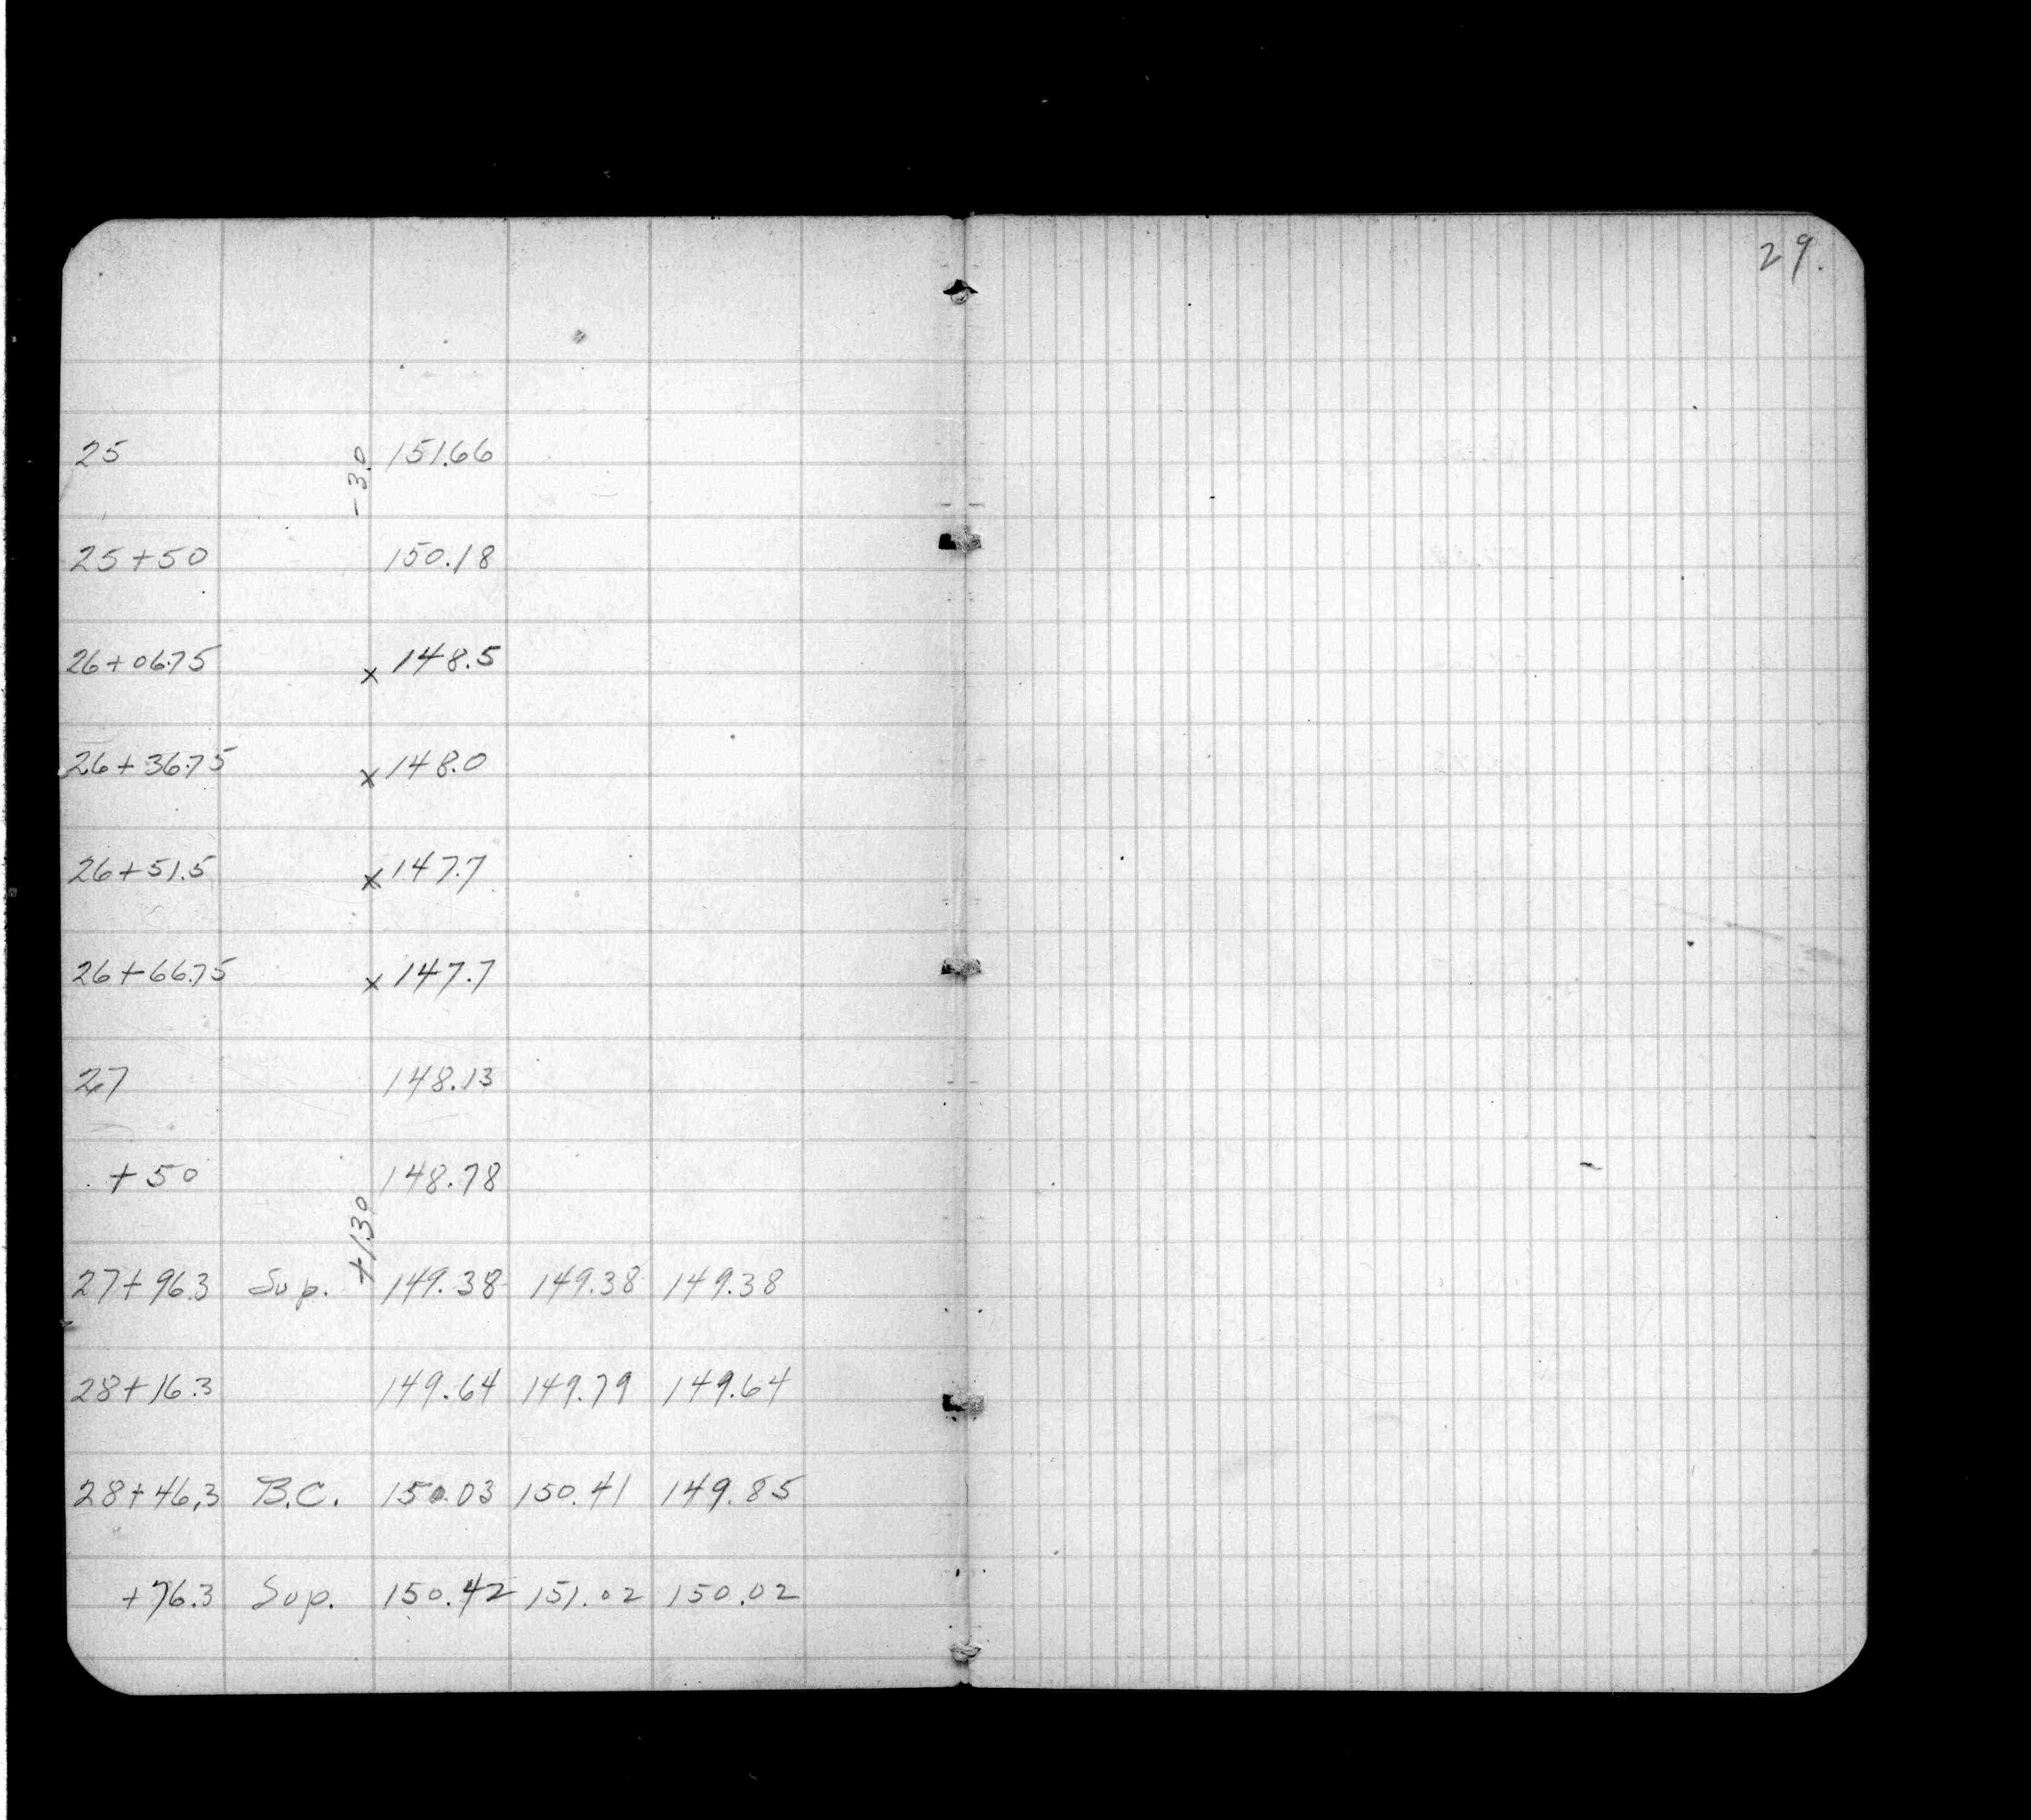 29.
25 -3.0 151.66
25+50 150.18
26+06.75 x 148.5
26+36.75 x 148.0
26+51.5 x 147.7
26+66.75 x 147.7
27 148.13
+50 148.78
27+96.3 Sup. +1.30 149.38 149.38 149.38
28+16.3 149.64 149.79 149.64
28+46.3 B.C. 150.03 150.41 149.85
+76.3 Sup. 150.42 151.02 150.02